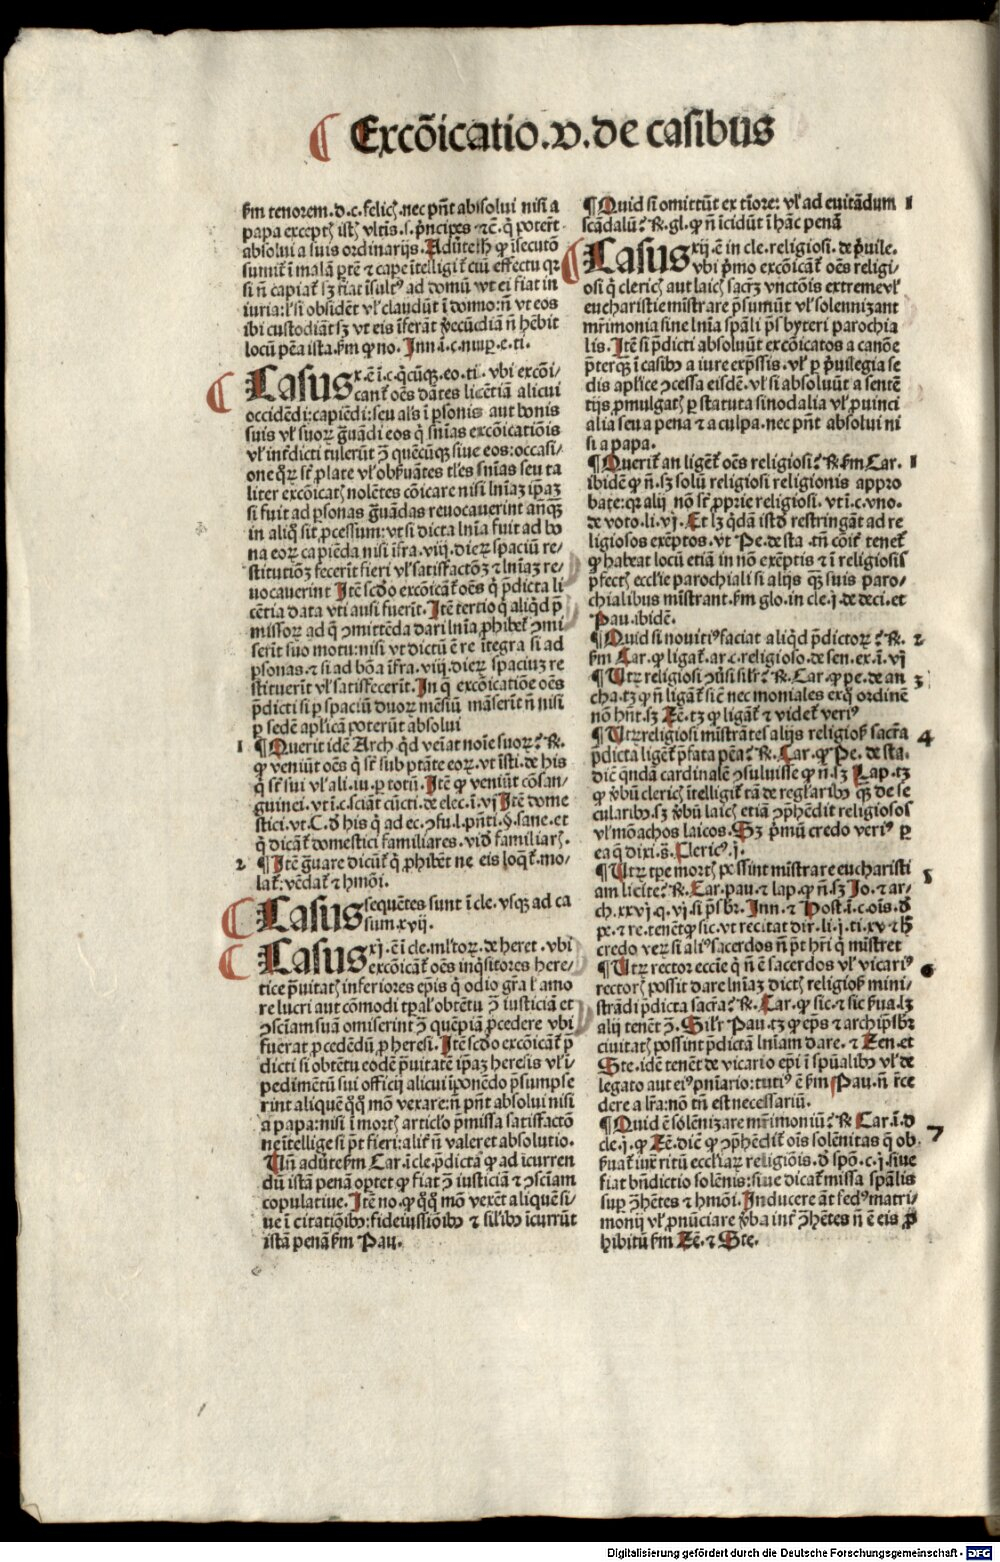 ¶ Excōicatio.v.de casibus
ẜm tenorem.d.c.felicꝭ.nec pn̄t absolui nisi a
papa exceptꝭ istꝭ vltis.s.p̄ncipes ⁊c̄.q̇ potert̄
absolui a suis ordinarijs. Aduertꝭ ꝙ īsecutō
sumit̄ ī malā ꝑtē ⁊ cape ītelligit̄ cū effectu qꝛ
si n̄ capiat̄ sꝫ fiat īsultꝰ ad domū vt ei fiat in
iuria:l̓ si obsidēt vl̓ claudūt ī domo:n̄ vt eos
ibi custodiāt sꝫ vt eis īferāt v̓ecūdiā n̄ hēbit
locū pēa ista.ẜm ꝙ no. Inn.ī.c.nuꝑ.e.ti.
Casus x.ē ī.c.q̇cūqꝫ.eo.ti. vbi excōi/
cant̄ oēs dātes licētiā alicui
occidēdi:capiēdi:seu al̓s ī ꝑsonis aut bonis
suis vl̓ suoꝝ g̓uādi eos q̇ sn̄ias excōicatiōis
vl̓ int̓dicti tulerūt ꝯ̄ quēcūqꝫ siue eos:occasi/
one qͦꝝ st̄ plate vl̓ obẜuātes tl̓es sn̄ias seu ta
liter excōicatꝭ nolētes cōicare nisi ln̄iaꝫ ip̄aꝫ
si fuit ad ꝑsonas g̓uādas reuocauerint an̄qꝫ
in aliq̊ sit ꝓcessum:vt si dicta ln̄ia fuit ad bo
na eoꝝ capiēda nisi īfra.viij.dieꝝ spaciū re/
stitutiōꝫ fecerīt fieri vl̓ satisfactōꝫ ⁊ ln̄iaꝫ re/
uocauerint Itē scdō excōicāt̄ oēs q̇ p̄dicta li
cētia data vti ausi fuerīt. Itē tertio q̇ aliq̇d p̄
missoꝝ ad q̊ ꝯmittēda dari ln̄ia ꝓhibet̄ ꝯmi
serīt suo motu:nisi vt dictū ē re ītegra si ad
ꝑsonas.⁊ si ad bōa īfra.viij.dieꝝ spaciuꝫ re
stituerīt vl̓ satisfecerīt. In q̄ excōicatiōe oēs
p̄dicti si ꝑ spaciū duoꝝ mēsiū māserīt n̄ nisi
ꝑ sedē aplicā poterūt absolui
1 ¶ Querit idē Arch.q̇d veīat noīe suoꝝ? ℟.
ꝙ veniūt oēs q̇ st̄ sub ptāte eoꝝ.vt īsti.de his
q̇ st̄ sui vl̓ ali.iu.ꝑ totū. Itē ꝙ veniūt cōsan/
guinei.vt ī.c.sciāt cūcti.de elec.ī.vj Itē dome
stici.vt.C.d̓ his q̇ ad ec.ꝯfu.l.pn̄ti.§.sane.et
q̇ dicāt̄ domestici familiares.vid̓ familiarꝭ.
2 ¶ Itē g̓uare dicūt̄ q̇ ꝓhibēt ne eis loq̄t̄.mo/
lat̄:vēdat̄ ⁊ hmōi.
Casus sequētes sunt ī cle.vsqꝫ ad ca
sum.xvij.
Casus xj.ē ī cle.ml̓toꝝ.de heret.vbi
excōicāt̄ oēs inq̇sitores here/
tice p̄uitatꝭ inferiores ep̄is q̇ odio gr̄a l̓ amo
re lucri aut cōmodi tꝑal̓ obtētu ꝯ̄ iusticiā et
ꝯsciam suā omiserint ꝯ̄ quēpiā ꝓcedere vbi
fuerat ꝓcedēdū ꝓ heresi. Itē scdō excōicāt̄ p̄
dicti si obtētu eodē p̄uitatē ip̄aꝫ heresis vl̓ ī/
pedimētū sui officij alicui īponēdo p̄sumpse
rint aliquē q̊q̊ mō vexare:n̄ pn̄t absolui nisi
a papa:nisi ī mortꝭ articl̓o p̄missa satisfactō
ne ītellige si p̄t fieri:alit̓ n̄ valeret absolutio.
Un̄ aduerte ẜm Car.ī cle.p̄dicta ꝙ ad īcurren
dū istā penā oꝑtet ꝙ fiat ꝯ̄ iusticiā ⁊ ꝯsciam
copulatiue. Itē no.ꝙ q̊q̊ mō vexēt aliquē si/
ue ī citatiōibꝰ:fideiussiōibꝰ ⁊ sil̓ibꝰ īcurrūt
istā penā ẜm Pau.
¶ Quid si omittūt ex tīore: vl̓ ad euitādum 1
scādalū? ℟.gl.ꝙ n̄ īcidūt ī hāc penā
Casus xij.ē in cle.religiosi.de p̄uile.
vbi p̄mo excōicāt̄ oēs religi/
osi q̇ clericꝭ aut laicꝭ sacr̄ꝫ vnctōis extreme vl̓
eucharistie mīstrare p̄sumūt vl̓ solennizant
mr̄imonia sine ln̄ia spāli p̄sbyteri parochia
lis. Itē si p̄dicti absoluūt excōicatos a canōe
p̄terqꝫ ī casibꝰ a iure exp̄ssis.vl̓ ꝑ p̄uilegia se
dis aplice ꝯcessa eisdē.vl̓ si absoluūt a sentē
tijs ꝓmulgatꝭ ꝑ statuta sinodalia vl̓ ꝓuinci
alia seu a pena ⁊ a culpa.nec pn̄t absolui ni
si a papa.
¶ Querit̄ an liget̄ oēs religiosi? ℟.ẜm Car. 1
ibidē ꝙ n̄.sꝫ solū religiosi religionis appro
bate:qꝛ alij nō st̄ ꝓprie religiosi.vt ī.c.vno.
de voto.li.vj. Et lꝫ q̇dā istd̓ restringāt ad re
ligiosos exēptos.vt Pe.de sta. tn̄ cōit̓ tenet̄
ꝙ habeat locū etiā in nō exēptis ⁊ ī religiosis
p̄fectꝭ ecclie parochiali si alijs qꝫ suis paro/
chialibus mīstrant.ẜm glo.in cle.j.de deci.et
Pau.ibidē.
¶ Quid si nouitiꝰ faciat aliq̇d p̄dictoꝝ? ℟. 2
ẜm Car.ꝙ ligat̄.ar.c.religioso.de sen.ex.ī.vj
¶ Utꝝ religiosi ꝯūsi sil̓r? ℟.Car.ꝙ pe.de an 3
cha.tꝫ ꝙ n̄ ligāt̄ sic nec moniales ex q̊ ordinē
nō hn̄t.sꝫ Zē.tꝫ ꝙ ligāt̄ ⁊ videt̄ veriꝰ
¶ Utꝝ religiosi mīstrātes alijs religiosꝭ sacr̄a 4
p̄dicta liget̄ p̄fata pēa? ℟.Car.ꝙ Pe.de sta.
dic̄ q̄ndā cardinalē ꝯsuluisse ꝙ n̄.sꝫ Lap.tꝫ
ꝙ v̓bū clericꝭ ītelligit̄ tā de regl̓aribꝰ qꝫ de se
cularibꝰ.sꝫ v̓bū laicꝭ etiā ꝯp̄hēdit religiosos
vl̓ mōachos laicos. Sꝫ p̄mū credo veriꝰ ꝑ
ea q̄ dixi.s̄. Clericꝰ.j.
¶ Utꝝ tꝑe mortꝭ possint mīstrare eucharisti 5
am licite? ℟.Car.pau.⁊ lap.ꝙ n̄.sꝫ Jo.⁊ ar/
ch.xxvj.q.vj.si p̄sbr̄. Inn.⁊ Host.ī.c.oīs.d̓
pe.⁊ re.tenēt ꝙ sic.vt recitat dir.li.j.ti.xv ⁊ h̓
credo veꝝ si aliꝰ sacerdos n̄ p̄t hr̄i q̇ mīstret
¶ Utꝝ rector eccīe q̇ n̄ ē sacerdos vl̓ vicariꝰ 6
rectorꝭ possit dare ln̄iaꝫ dictꝭ religiosꝭ mini/
strādi p̄dicta sacr̄a? ℟.Car.ꝙ sic.⁊ sic ẜua.lꝫ
alij tenēt ꝯ̄. Sil̓r Pau.tꝫ ꝙ ep̄s ⁊ archip̄sbr̄
ciuitatꝭ possint p̄dictā ln̄iam dare. ⁊ Zen.et
Ste.idē tenēt de vicario ep̄i ī spūalibꝰ vl̓ de
legato aut eiꝰ pn̄iario:tutiꝰ ē ẜm Pau.n̄ r̄ce
dere a lr̄a:nō tn̄ est necessariū.
¶ Quid ē sōlēnizare mr̄imoniū? ℟ Car.ī.d 7
cle.j.ꝙ Zē.dic̄ ꝙ ꝯp̄hēdit̄ oīs solēnitas q̄ ob
ẜuat̄ iuxͣ ritū eccl̓iaꝝ religiōis.d̓ spō.c.j.siue
fiat bn̄dictio solēnis:siue dicat̄ missa spālis
suꝑ ꝯ̄hētes ⁊ hmōi. Inducere āt sedꝰ matri/
monij vl̓ ꝓnūciare v̓ba int̓ ꝯ̄hētes n̄ ē eis ꝓ
hibitū ẜm Zē.⁊ Ste.
Digitalisierung gefördert durch die Deutsche Forschungsgemeinschaft - DFG